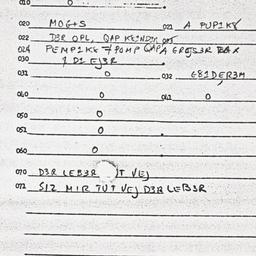 010 O
020 MOG+S 021 A PUP1K8
022 D3R OPL, QAP KEINDK 023
024 PEMP1KE 7 POMP QAP A ERGTS3R
030 1 D1 EJ3R
031 O 032 G81DER3M
040 O 041 O
050 O
051 O
060 O
070 D3R LEB3R JT VEJ
072 S12 MIR TUT VEJ D3R LEB3R